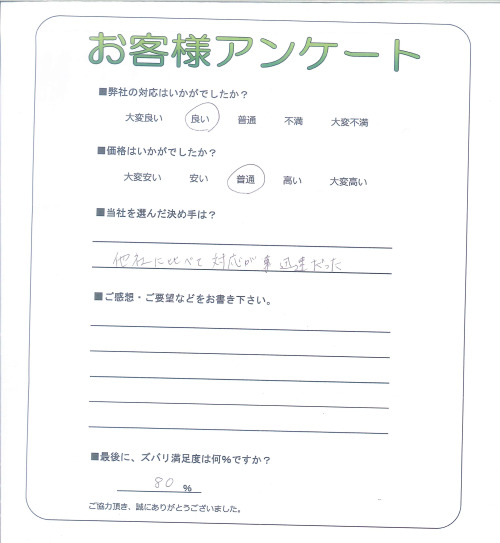 お客様アンケート
■弊社の対応はいかがでしたか？
大変良い 良い 普通 不満 大変不満
■価格はいかがでしたか？
大変安い 安い 普通 高い 大変高い
■当社を選んだ決め手は？
他社に比べて対応が迅速だった
■ご感想・ご要望などをお書き下さい。
■最後に、ズバリ満足度は何%ですか？
80 %
ご協力頂き、誠にありがとうございました。